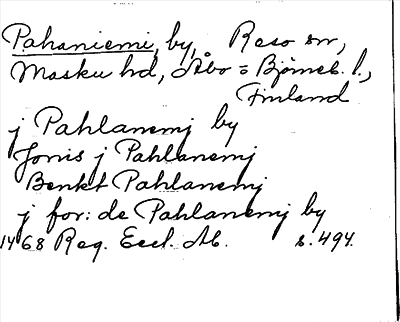 Pahaniemi, by, Reso sn,
Masku hd, Åbo = Björneb. l.,
Finland
j Pahlanemj by
Jönis j Pahlanemj
Benkt Pahlanemj
j for: de Pahlanemj by
1468 Reg. Eccl. Ab. s. 494.